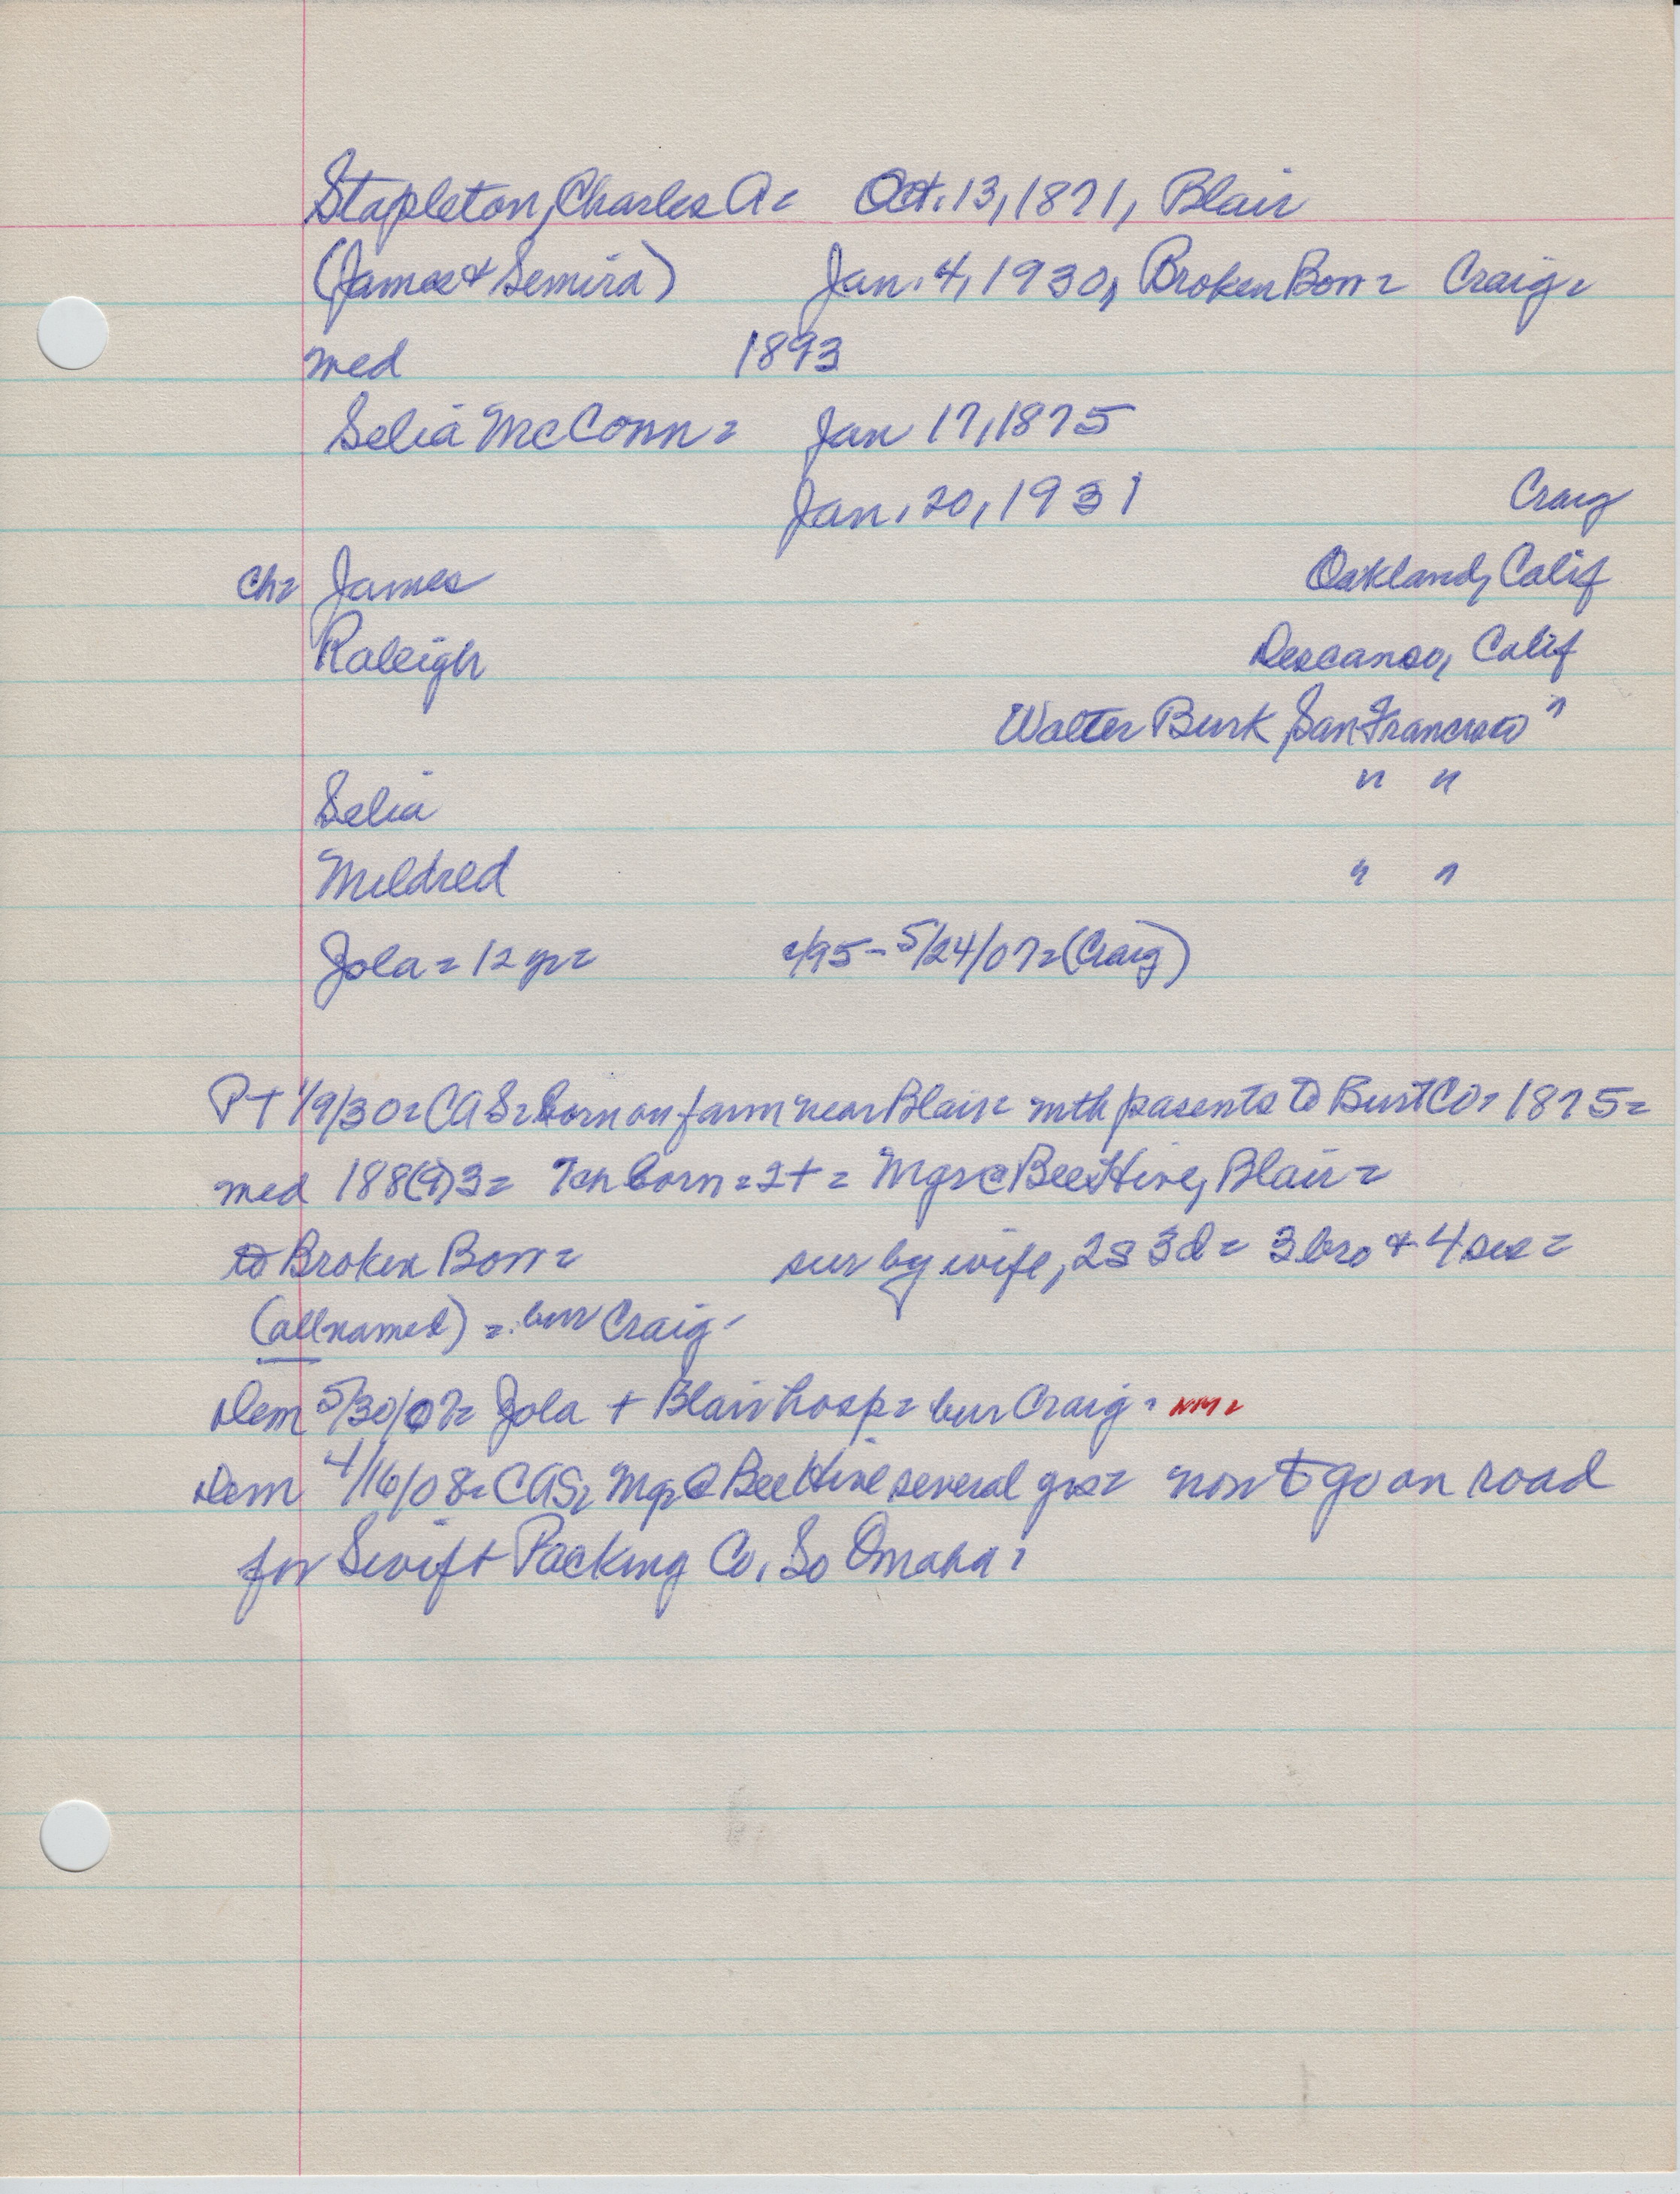 Stapleton, Charles A = Oct. 13, 1871, Blair
(James & Semira) Jan. 4, 1930, Broken Bow = Craig =
med 1893
Selia McConn = Jan 17, 1875
Jan. 20, 1931 Craig
Ch = James Oakland, Calif
Raleigh Descanso, Calif
Walter Burk San Francisco "
Selia " "
Mildred " "
Jola = 12 yr = c/95 - 5/24/07 = (Craig)
PT 1/9/30 = CAS = born on farm near Blair = with parents to Burt Co = 1875 =
med 188(9)3 = Ten born = 2+ = Mgr @ Bee Hive, Blair =
to Broken Bow = sur by wife, 2s 3d = 3 bro & 4 sis =
(all named) = bur Craig -
Dem 5/30/07 = Jola + Blair hosp = bur Craig = NM =
Dem 4/16/08 = CAS, Mgr @ Bee Hive several yrs = now to go on road
for Swift Packing Co. So Omaha =